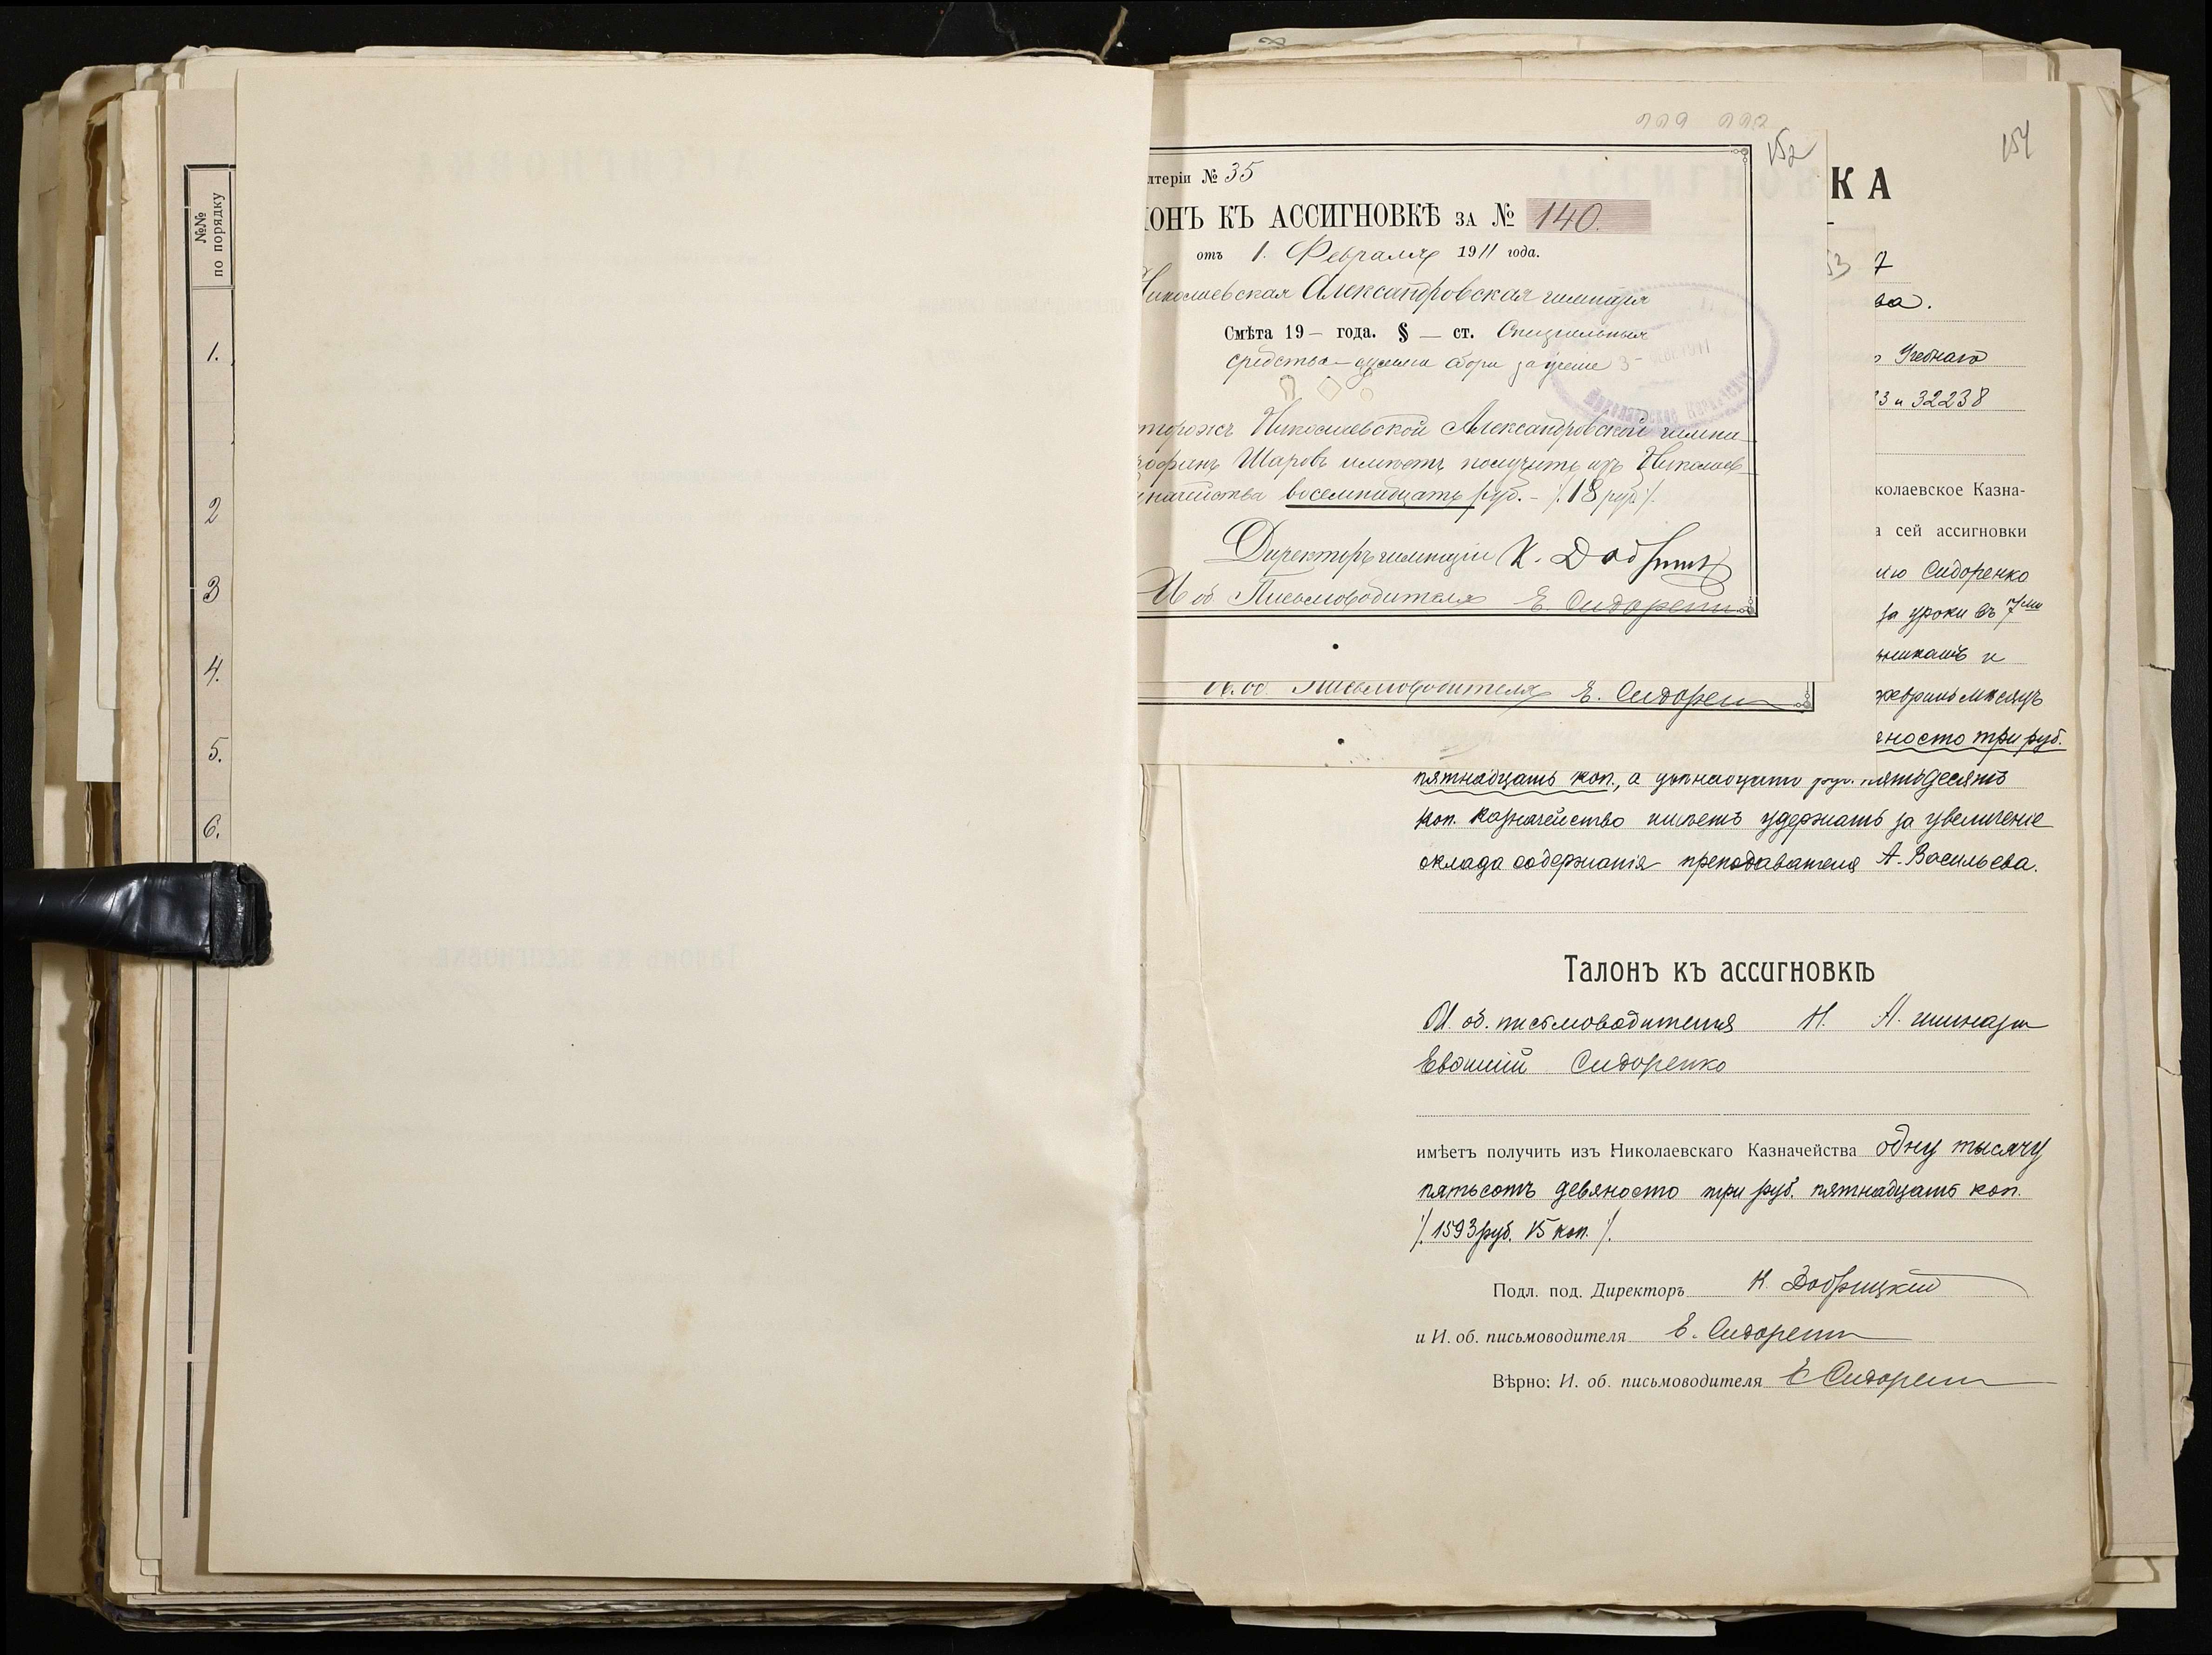 №№
по порядку
1.
2
3
4.
5.
6.
152
лтеріи № 35
ОНЪ КЪ АССИГНОВКѢ ЗА № 140.
отъ 1. Февраля 1911 года.
Николаевская Александровская гимназія
Смѣта 19— года. § — ст. Спеціальныя
средства — сумма сбора за ученіе
торожъ Николаевской Александровской гимна-
Шаровъ имѣетъ получить изъ Николаев-
значейства восемнадцать руб. — /. 18 руб. /.
Директоръ гимназіи К. Добрицк
И об Письмоводителя Е. Сидоренк
И. об. Письмоводителя Е. Сидорен
154
КА
53
7
ва.
Учебнаго
3 и 32238
колаевское Казна-
а сей ассигновки
ію Сидоренко
за уроки въ 7ми
никамъ и
мѣсяцъ
яносто три руб.
пятнадцать коп., а двѣнадцать руб. пятьдесятъ
коп. Казначейство имѣетъ удержать за увеличеніе
оклада содержанія преподавателя А. Васильева.
Талонъ къ ассигновкѣ
И. об. письмоводителя Н. А. гимназіи
Евѳимій Сидоренко
имѣетъ получить изъ Николаевскаго Казначейства одну тысячу
пятьсотъ девяносто три руб. пятнадцать коп.
/. 1593 руб. 15 коп. /.
Подл. под. Директоръ К. Добрицкій
и И. об. письмоводителя Е. Сидоренко
Вѣрно: И. об. письмоводителя Е Сидоренко